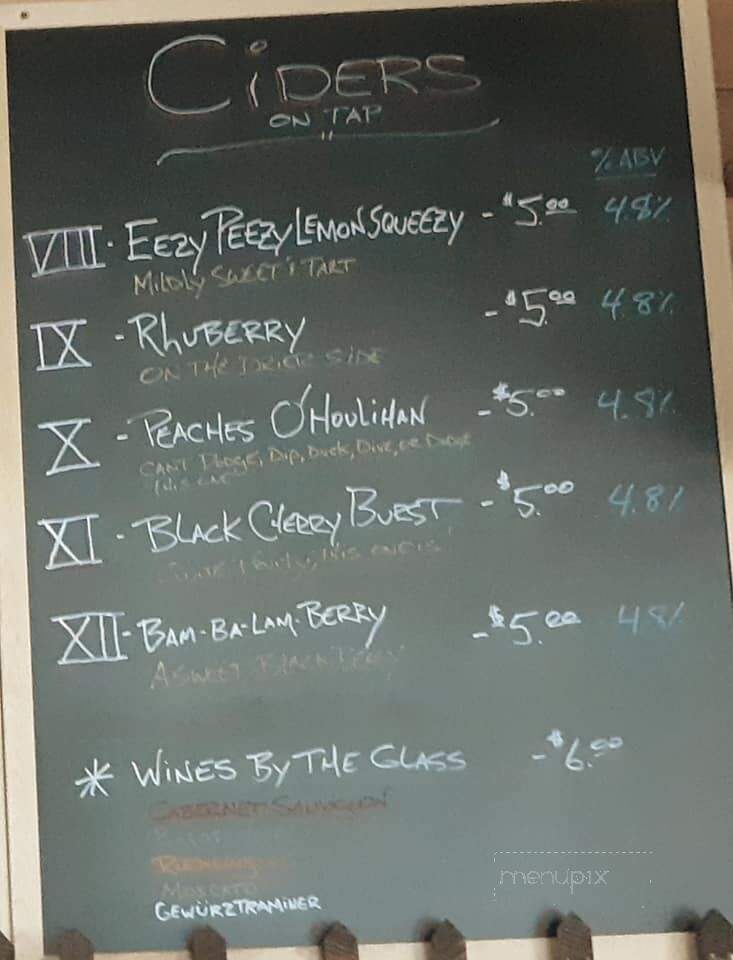 CiDERS
ON TAP
% ABV
VIII · EEZY PEEZY LEMON SQUEEZY - $5.00 4.8%
MILDLY SWEET & TART
IX - RHUBERRY - $5.00 4.8%
ON THE DRIER SIDE
X - PEACHES O'HOULIHAN - $5.00 4.8%
CAN'T DODGE, DIP, DUCK, DIVE, OR DODGE
THIS ONE
XI - BLACK CHERRY BURST - $5.00 4.8%
THIS ONE IS
XII - BAM-BA-LAM-BERRY - $5.00 4.8%
A SWEET BLACK BERRY
* WINES BY THE GLASS - $6.00
CABERNET SAUVIGNON
RIESLING
MOSCATO
GEWÜRZTRAMINER
menupix